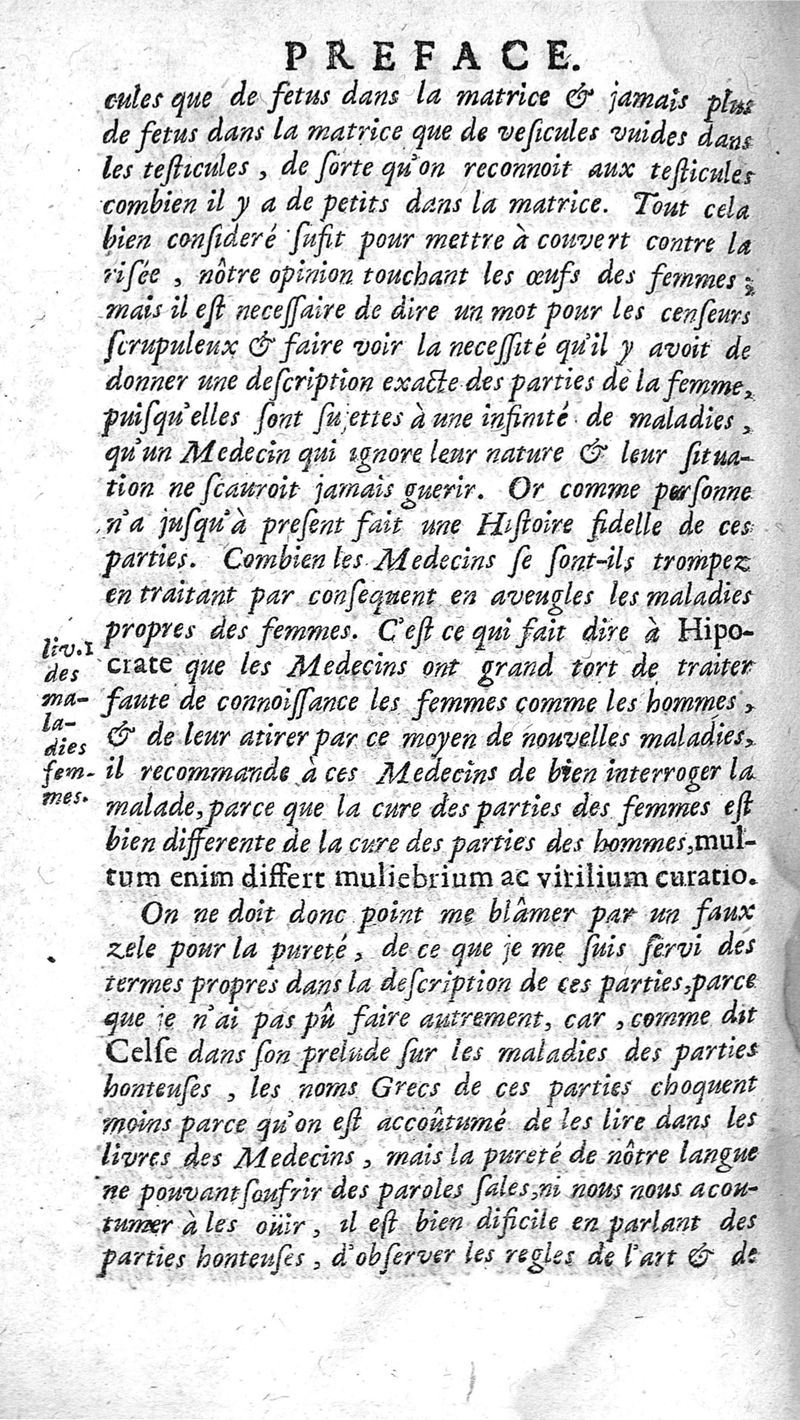 PREFACE.
cules que de fetus dans la matrice & jamais plus
de fetus dans la matrice que de veſicules vuides dans
les teſticules, de ſorte qu'on reconnoit aux teſticules
combien il y a de petits dans la matrice. Tout cela
bien conſideré ſufit pour mettre à couvert contre la
riſée, nôtre opinion touchant les œufs des femmes;
mais il eſt neceſſaire de dire un mot pour les cenſeurs
ſcrupuleux & faire voir la neceſſité qu'il y avoit de
donner une deſcription exacte des parties de la femme,
puiſqu'elles ſont ſujettes à une infinité de maladies,
qu'un Medecin qui ignore leur nature & leur ſitua-
tion ne ſcauroit jamais guerir. Or comme perſonne
n'a juſqu'à preſent fait une Hiſtoire fidelle de ces
parties. Combien les Medecins ſe ſont-ils trompez
en traitant par conſequent en aveugles les maladies
propres des femmes. C'eſt ce qui fait dire à Hipo-
crate que les Medecins ont grand tort de traiter
faute de connoiſſance les femmes comme les hommes,
& de leur atirer par ce moyen de nouvelles maladies,
il recommande à ces Medecins de bien interroger la
malade, parce que la cure des parties des femmes eſt
bien differente de la cure des parties des hommes, mul-
tum enim differt muliebrium ac virilium curatio.
liv. I
des
ma-
la-
dies
fem-
mes.
On ne doit donc point me blâmer par un faux
zele pour la pureté, de ce que je me ſuis ſervi des
termes propres dans la deſcription de ces parties, parce
que je n'ai pas pû faire autrement, car, comme dit
Celſe dans ſon prelude ſur les maladies des parties
honteuſes, les noms Grecs de ces parties choquent
moins parce qu'on eſt accoûtumé de les lire dans les
livres des Medecins, mais la pureté de nôtre langue
ne pouvant ſoufrir des paroles ſales, ni nous nous acou-
tumer à les oüir, il eſt bien dificile en parlant des
parties honteuſes, d'obſerver les regles de l'art & de